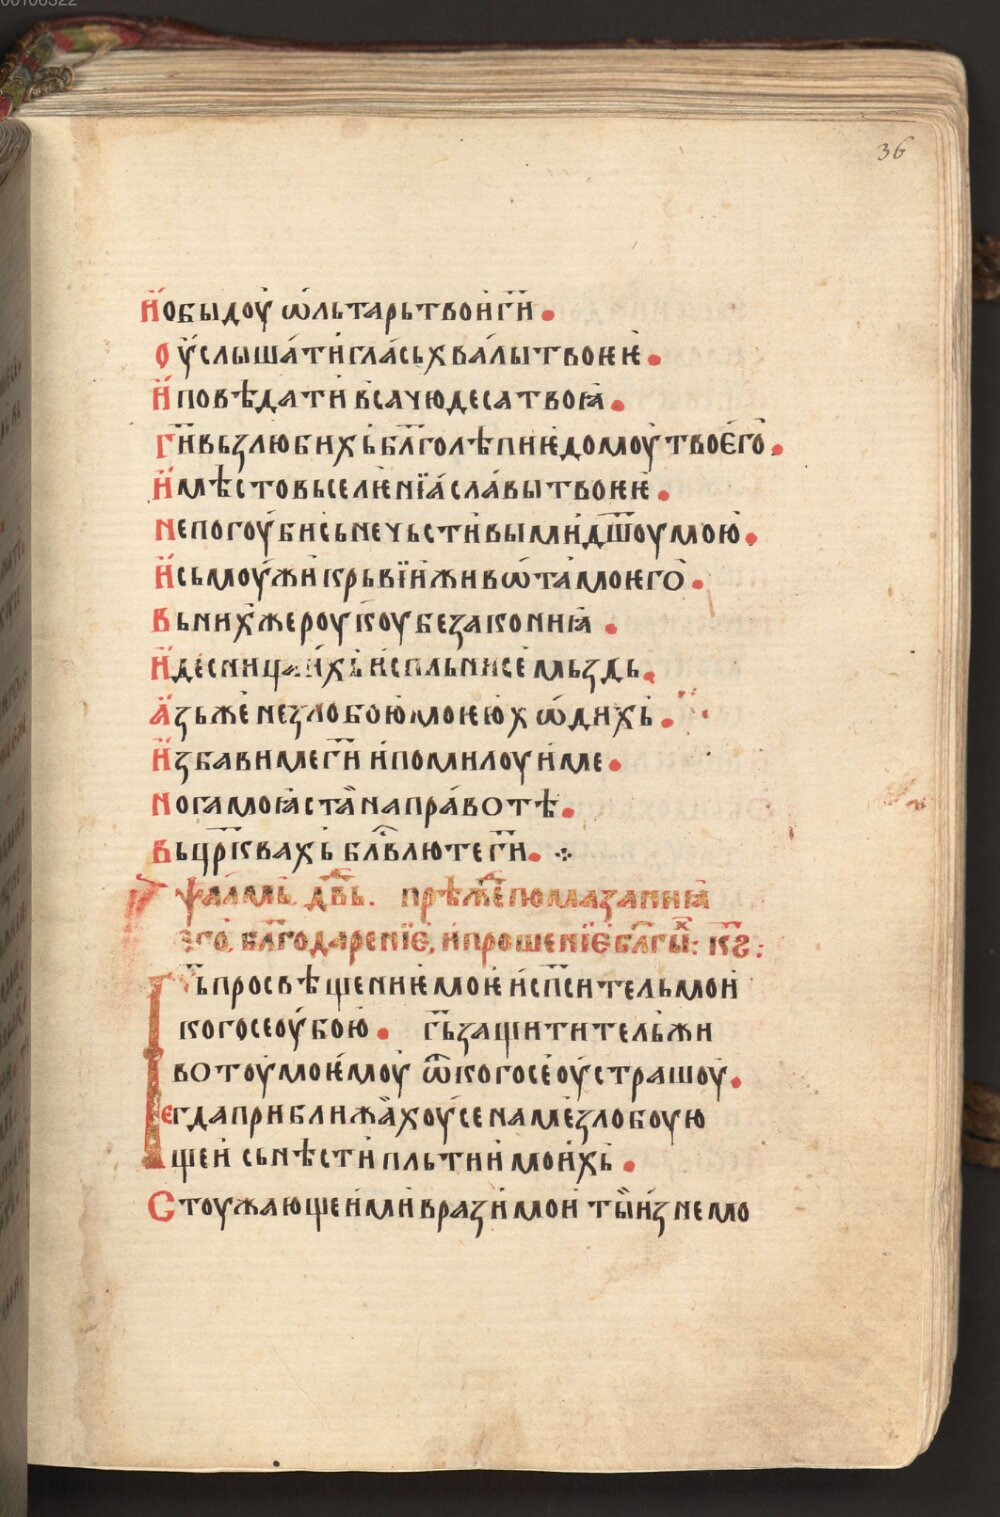 36
И҆ обыдоу ѡ҆льтарь твои г҃и.
оу҆слыша́ти гла́сь хва́лы твоѥѥ.
И҆ повѣдати вса чюдеса твоꙗ.
Г҃и вьзлюбихь бл҃голѣпиѥ домоу твоѥго.
И҆ мѣсто вьселѥнїа́ сла́вы твоѥѥ.
Не погоуби сь нечьстивыми дш҃оу мою.
И҆ сь моужи крьвїи живѡта моѥго.
Вь нихже роукоу безакониꙗ.
И҆ десница ихь испльни се мьздь.
А҆зь же незлобою моѥю хѡдихь.
И҆збави ме г҃и и помилоуи ме.
Нога моꙗ ста на пра́вотѣ.
Вь цр҃квахь бл҃влю те г҃и.
Ѱалмь дв҃дь. прѣжⷣе помазаниꙗ
его, бл҃годаренїе, и прошенїе бл҃гыⷯ: кѕ:
Г҃ь просвѣщениѥ моѥ и сп҃ситель мои
кого се оубою. г҃ь защититель жи
вотоу моѥмоу ѿ кого се оустрашоу.
егда приближа́хоу се на ме злобоую
щеи сьнѣсти пльтии моихь.
Стоужающеи ми врази мои ты изнемо